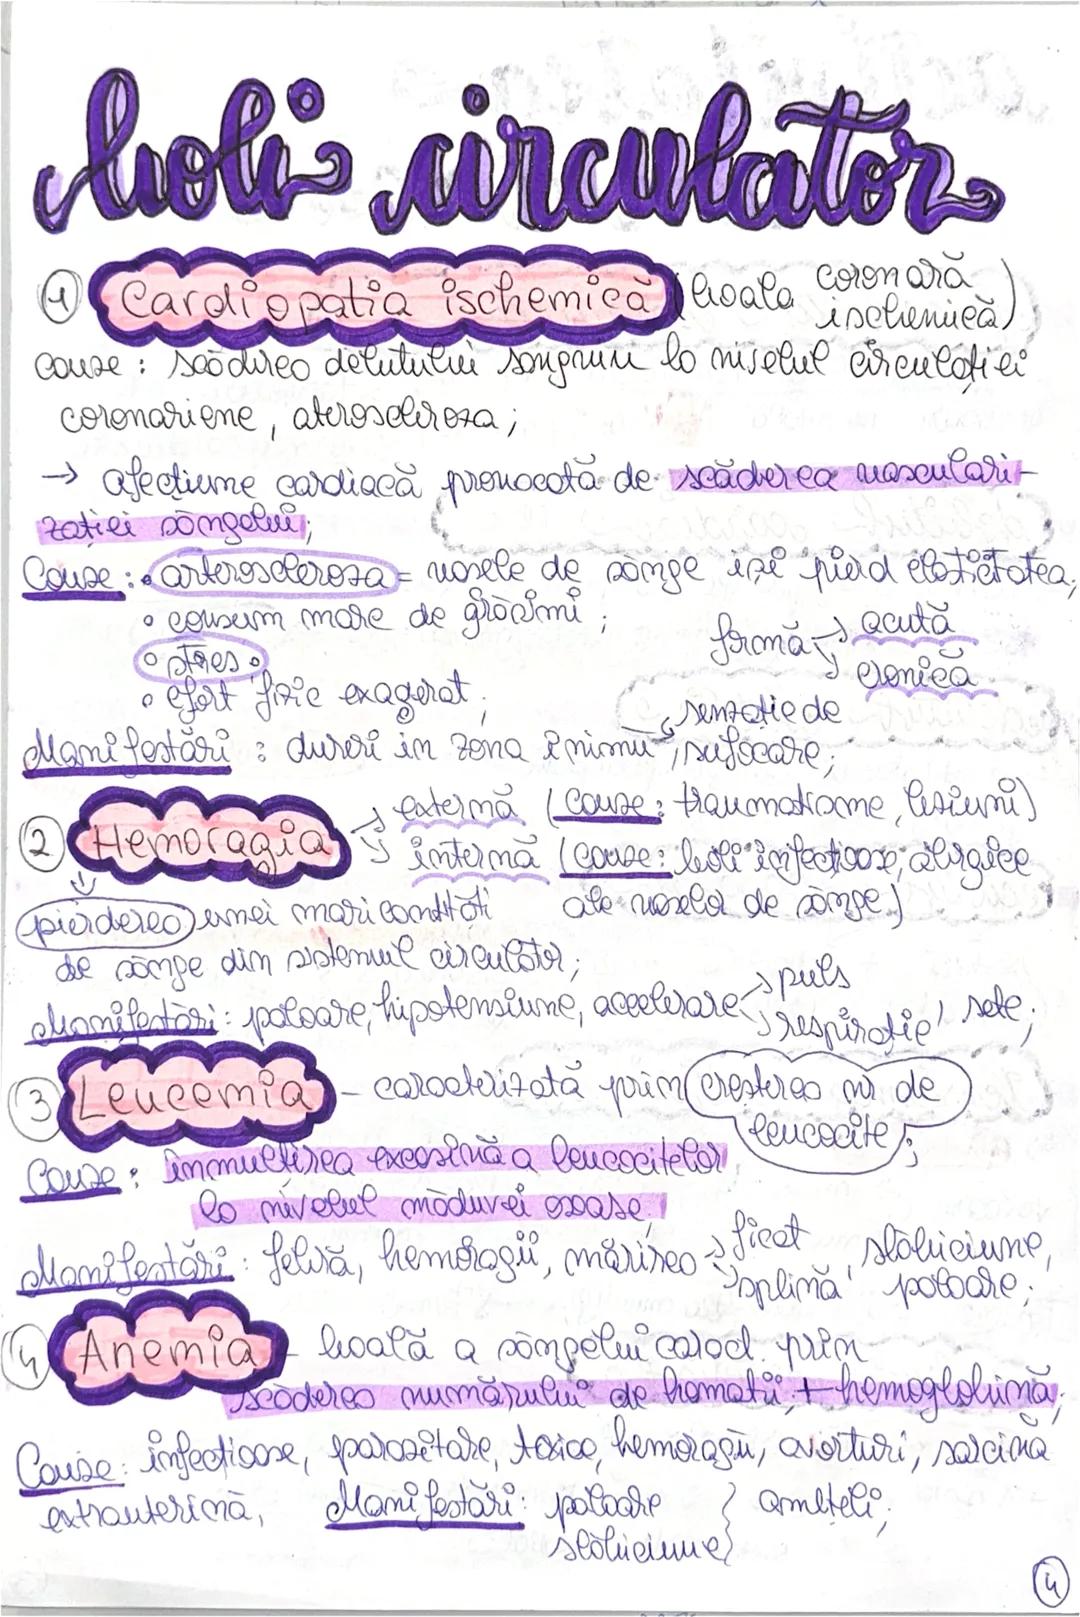 boli circulator
1 Cardiopatia ischemică (boala coronară ischemică)
cauze: scăderea debitului sangvin la nivelul circulației
coronariene, ateroscleroza;
→ afecțiune cardiacă provocată de scăderea vasculari-
zației sângelui;
Cauze: • arteroscleroza = vasele de sânge își pierd elasticitatea;
• consum mare de grăsimi;
formă → acută
→ cronică
• stres •
• efort fizic exagerat;
Manifestări: dureri în zona inimii, senzație de sufocare;
2 Hemoragia → externă (cauze: traumatisme, leziuni)
→ internă (cauze: boli infecțioase, alergice
ale vaselor de sânge)
pierderea unei mari cantități
de sânge din sistemul circulător;
Manifestări: paloare, hipotensiune, accelerare → puls
→ respirație, sete;
3 Leucemia – caracterizată prin creșterea nr de
leucocite;
Cauze: înmulțirea excesivă a leucocitelor
la nivelul măduvei osoase;
Manifestări: febră, hemoragii, mărirea → ficat
→ splină, slăbiciune,
paloare;
4 Anemia – boală a sângelui caract. prin
scăderea numărului de hematii + hemoglobină;
Cauze: infecțioase, parazitare, toxice, hemoragii, avorturi, sarcină
extrauterină, Manifestări: paloare } amețeli;
slăbiciune
4